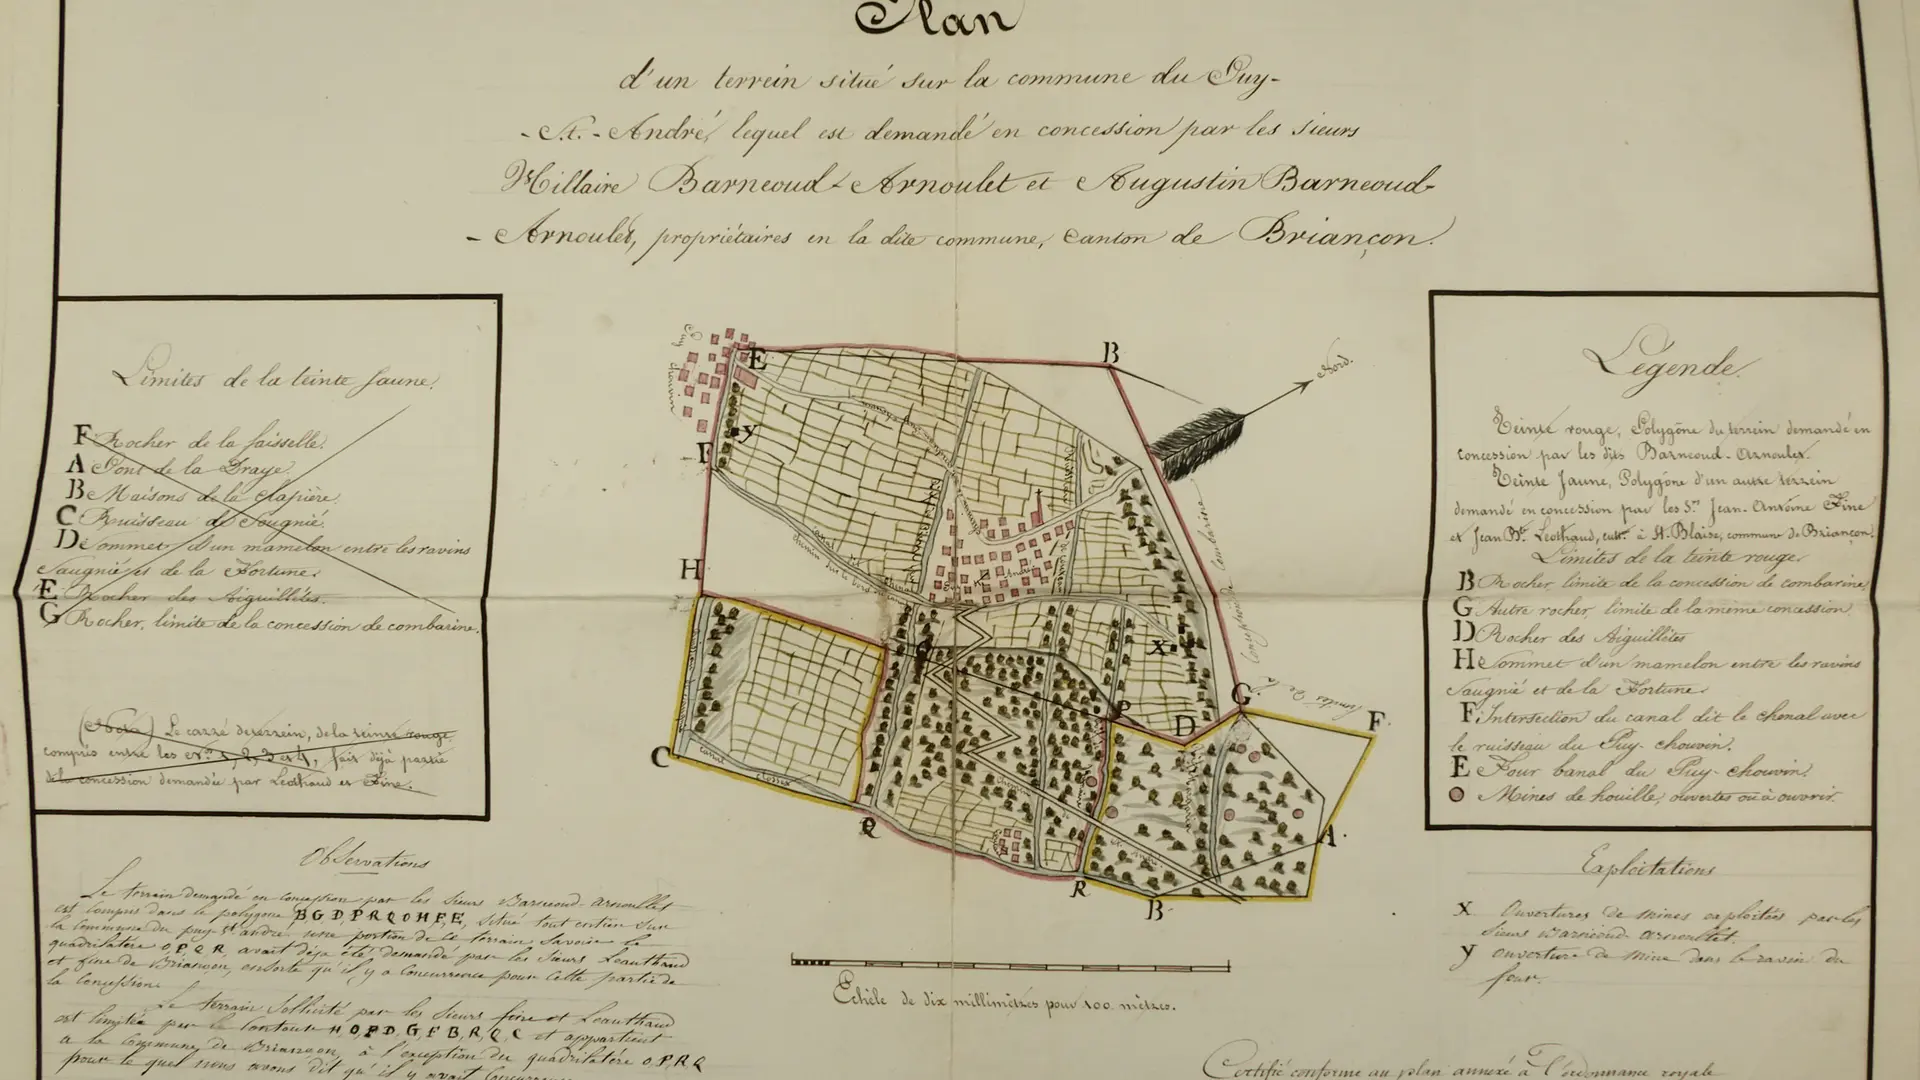 Plan
d'un terrein situé sur la commune du Puy-
-St.-André, lequel est demandé en concession par les sieurs
Hillaire Barneoud-Arnoulet et Augustin Barneoud-
-Arnoulet, propriétaires en la dite commune, canton de Briançon.
Limites de la teinte jaune.
F Rocher de la faisselle.
A Pont de la Draye.
B Maisons de la clapière.
C Ruisseau de Saugnié.
D Sommet d'un mamelon entre les ravins
Saugnié et de la Fortune.
E Rocher des Aiguillètes.
G Rocher, limite de la concession de combarine.
(Nota) Le carré de terrein, de la teinte rouge
compris entre les nos. 1, 2, 3 et 4, fait déjà partie
de la concession demandée par Leothaud et Fine.
Observations
Le terrain demandé en concession par les sieurs Barneoud-Arnoullet
est compris dans le polygone BGDPRQOHFE, situé tout entier sur
la commune du puy-St-andré, une portion de ce terrain, savoir le
quadrilatère O,P,Q,R, avait déjà été demandé par les sieurs Leauthaud
et fine de Briançon, ensorte qu'il y a concurrence pour cette partie de
la concession.
Le terrain sollicité par les sieurs fine et Leauthaud
est limitée par le contour H,O,P,D,G,F,B,R,Q,C et appartient
a la commune de Briançon, à l'exception du quadrilatère O,P,R,Q
pour le quel nous avons dit qu'il y avait concurrence
Puy
chouvin
E
B
Nord.
y
F
H
canal dit le chenal
St André
X
O
P
D
G
F
C
canal
Q
R
B
A
limites de la
concession de combarine
Echèle de dix millimètres pour 100 mètres.
Légende
Teinte rouge, Polygône du terrein demandé en
concession par les dits Barneoud-Arnoulet.
Teinte Jaune, Polygône d'un autre terrein
demandé en concession par les Srs Jean-Antoine Fine
et Jean Bte Leothaud, cultrs à St Blaise, commune de Briançon.
Limites de la teinte rouge.
B Rocher limite de la concession de combarine
G Autre rocher, limite de la même concession
D Rocher des Aiguillètes
H Sommet d'un mamelon entre les ravins
Saugnié et de la Fortune.
F Intersection du canal dit le chenal avec
le ruisseau du Puy-chouvin.
E Four banal du Puy-chouvin.
Mines de houille, ouvertes ou à ouvrir.
Exploitations
X. Ouvertures de mines exploitées par les
sieurs Barneoud-Arnoullet.
y ouverture de mine dans le ravin du
four.
Certifié conforme au plan annexé à l'ordonnance royale